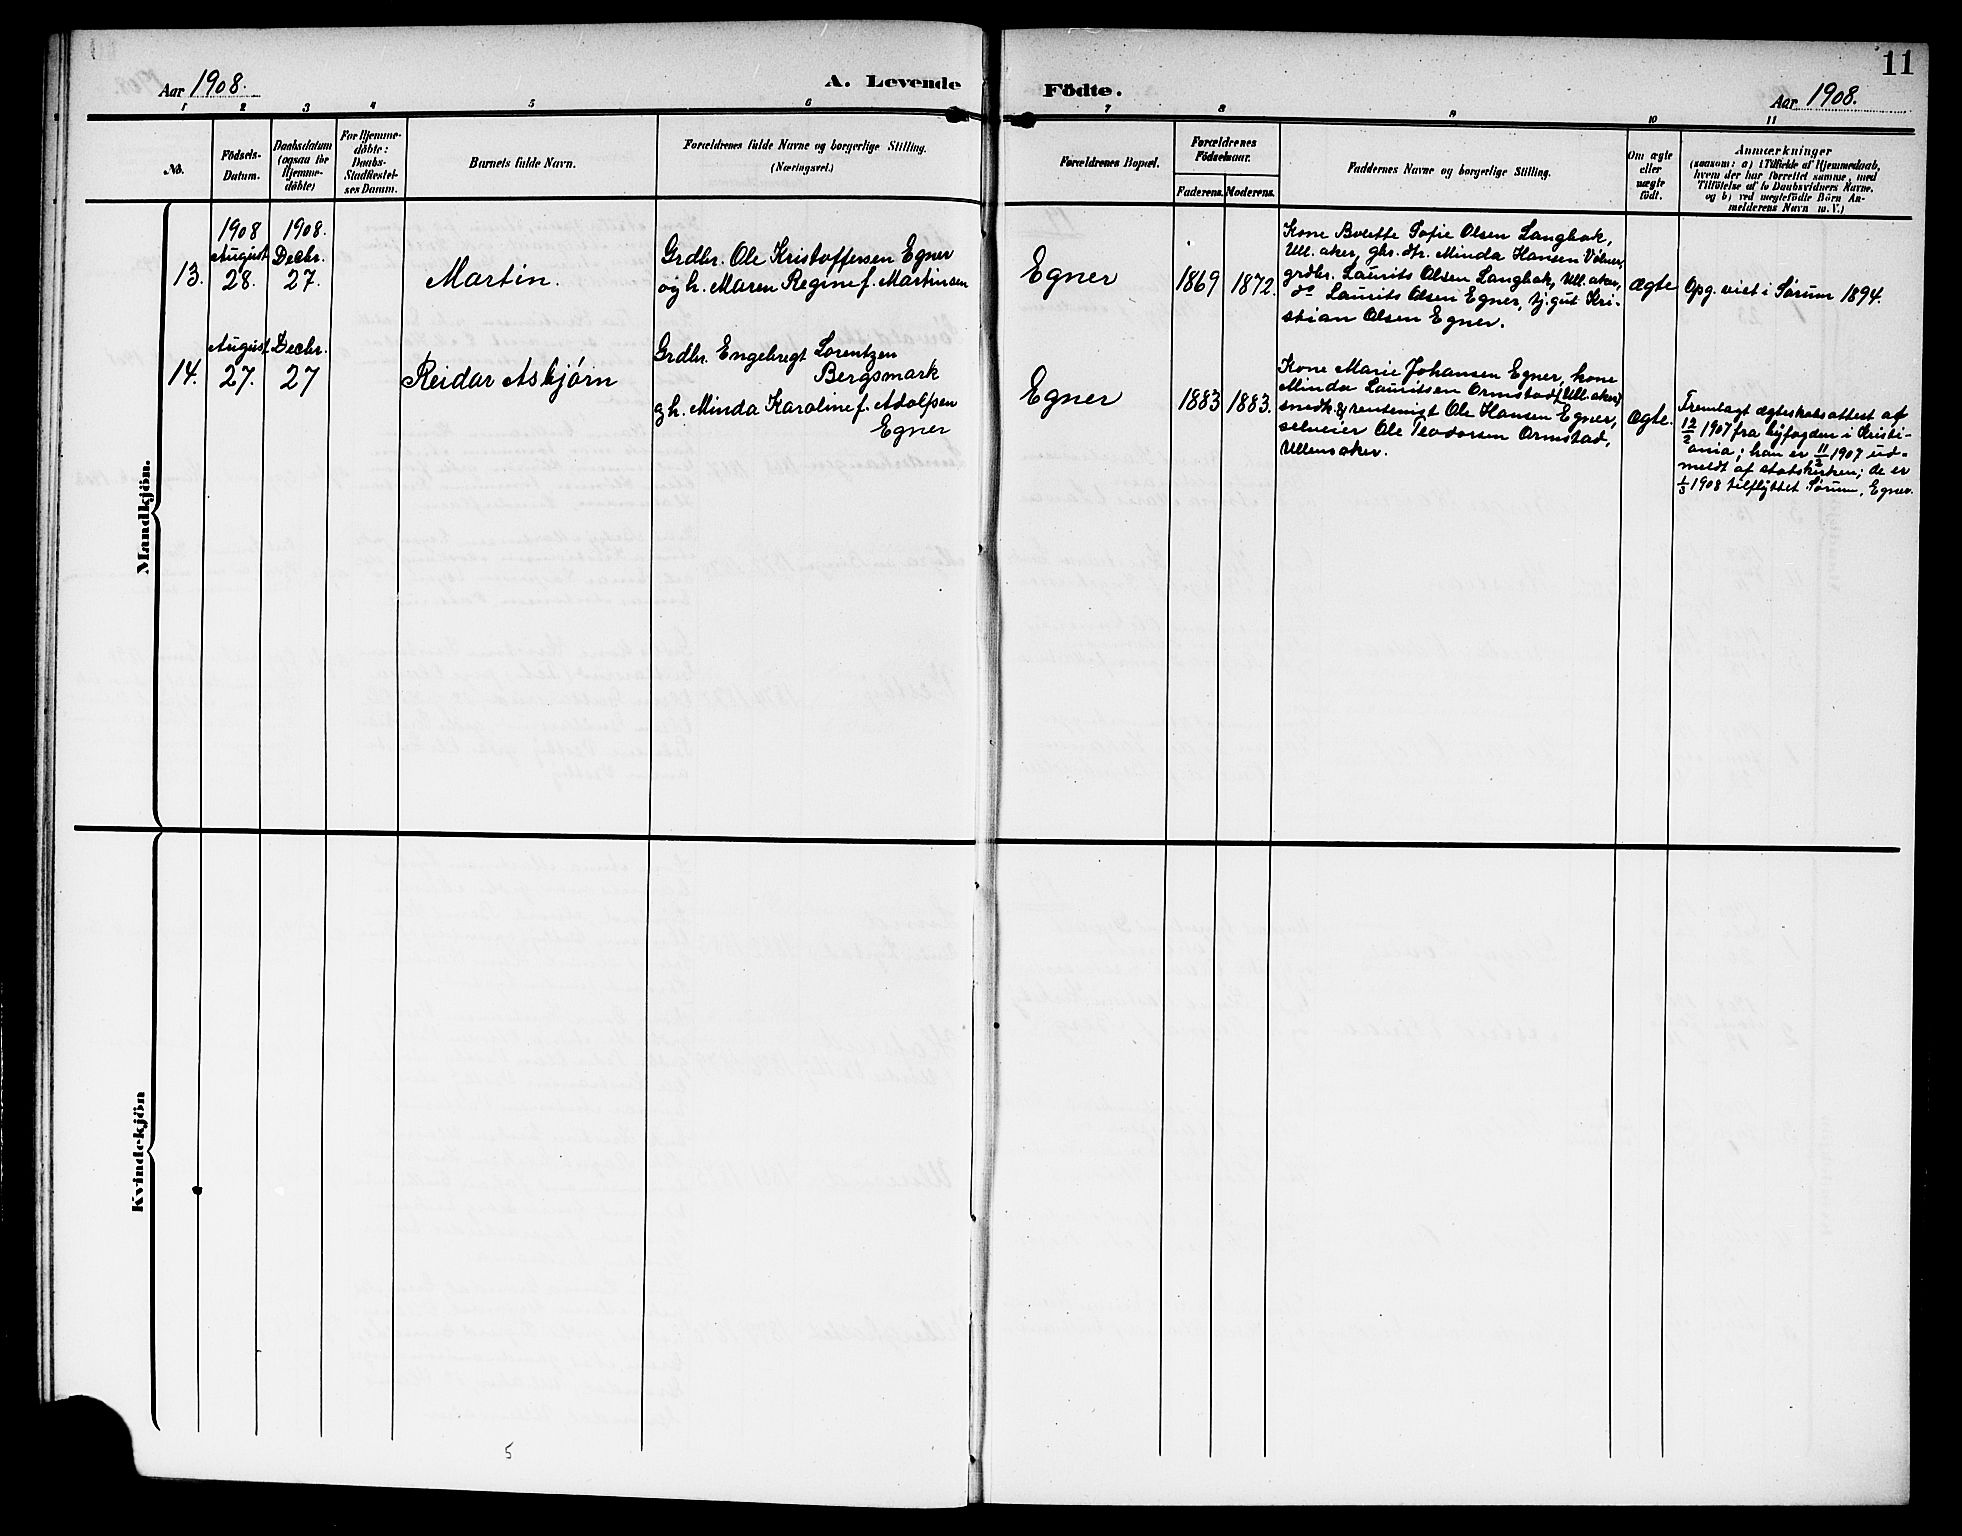 11
Aar 1908.
A. Levende Födte.
Aar 1908.
1 2 3 4 5 6 7 8 9 10 11
No.
Födsels-
Datum.
Daabsdatum
(ogsaa for
Hjemme-
döbte)
For Hjemme-
döbte:
Daabs-
Stadfæstel-
ses Datum.
Barnets fulde Navn.
Forældrenes fulde Navne og borgerlige Stilling.
(Næringsvei.)
Forældrenes Bopæl.
Forældrenes
Födselsaar.
Faderens. Moderens.
Faddernes Navne og borgerlige Stilling.
Om ægte
eller
uægte
födt.
Anmærkninger
(saasom: a) i Tilfælde af Hjemmedaab,
hvem der har forrettet samme, med
Tilföielse af to Daabsvidners Navne,
og b) ved uægtefödte Börn An-
melderens Navn m. V.)
Mandkjön.
13.
1908
August
28.
1908.
Decbr.
27.
Martin.
Grdbr. Ole Kristoffersen Egner
og h. Maren Regine f. Martinsen
Egner
1869 1872.
Kone Bolette Sofie Olsen Langbak,
Ull.aker, gbr. dtr. Minda Hansen
grdbr. Laurits Olsen Langbak, Ull.aker,
do Laurits Olsen Egner, tj.gut Kri-
stian Olsen Egner.
ægte
Opg. viet i Sørum 1894.
14.
August
27.
Decbr.
27
Reidar Asbjørn
Grdbr. Engebregt Lorentzen
Bergsmark
og h. Minda Karoline f. Adolfsen
Egner
Egner
1883 1883.
Kone Marie Johansen Egner, kone
Minda Lauritsen Ormstad (Ull.aker)
snedk. & rentenist Ole Hansen Egner,
selveier Ole Teodorsen Ormstad,
Ullensaker.
ægte.
Fremlagt ægteskabsattest af
12/2 1907 fra byfogden i Kristi-
ania; han er 11/2 1907 ud-
meldt af statskirken; de er
1/3 1908 tilflyttet Sørum, Egner.
Kvindekjön
5